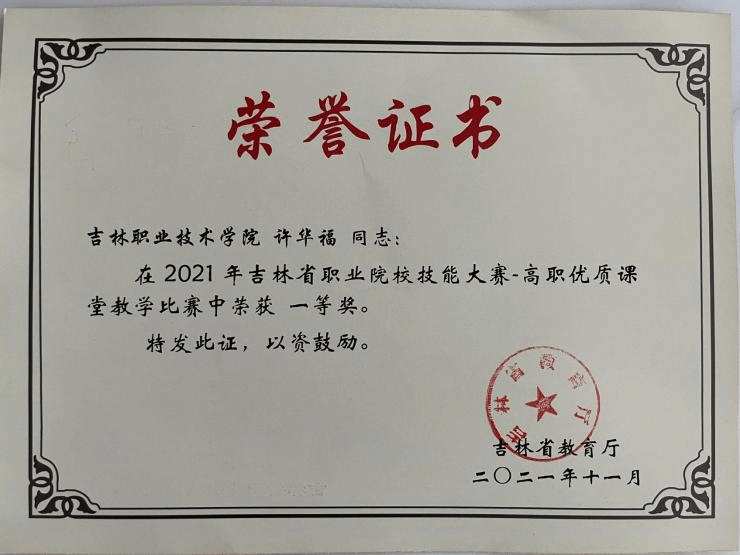 荣誉证书
吉林职业技术学院 许华福 同志：
在 2021 年吉林省职业院校技能大赛-高职优质课
堂教学比赛中荣获 一等奖。
特发此证，以资鼓励。
吉林省教育厅
吉林省教育厅
二〇二一年十一月